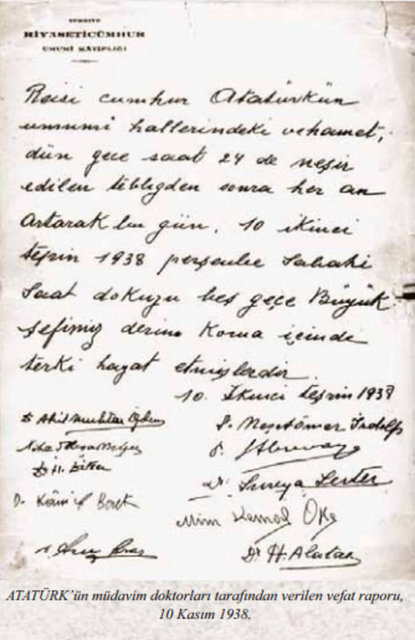 TÜRKİYE
RİYASETİCÜMHUR
UMUMİ KÂTİPLİĞİ
Reisi cumhur Atatürkün
umumî hallerindeki vehamet,
dün gece saat 24 de neşir
edilen tebliğden sonra her an
artarak bu gün, 10 ikinci
teşrin 1938 perşenbe sabahi
saat dokuzu beş geçe Büyük
Şefimiz derin koma içinde
terki hayat etmişlerdir.
10. İkinci teşrin 1938
Dr Akil Muhtar Özden
Dr. Neşetömer İrdelp
Dr. Süreya Serter
Dr. Kâmil Berk
Mim Kemal Öke
Dr H. Alataş
ATATÜRK'ün müdavim doktorları tarafından verilen vefat raporu,
10 Kasım 1938.